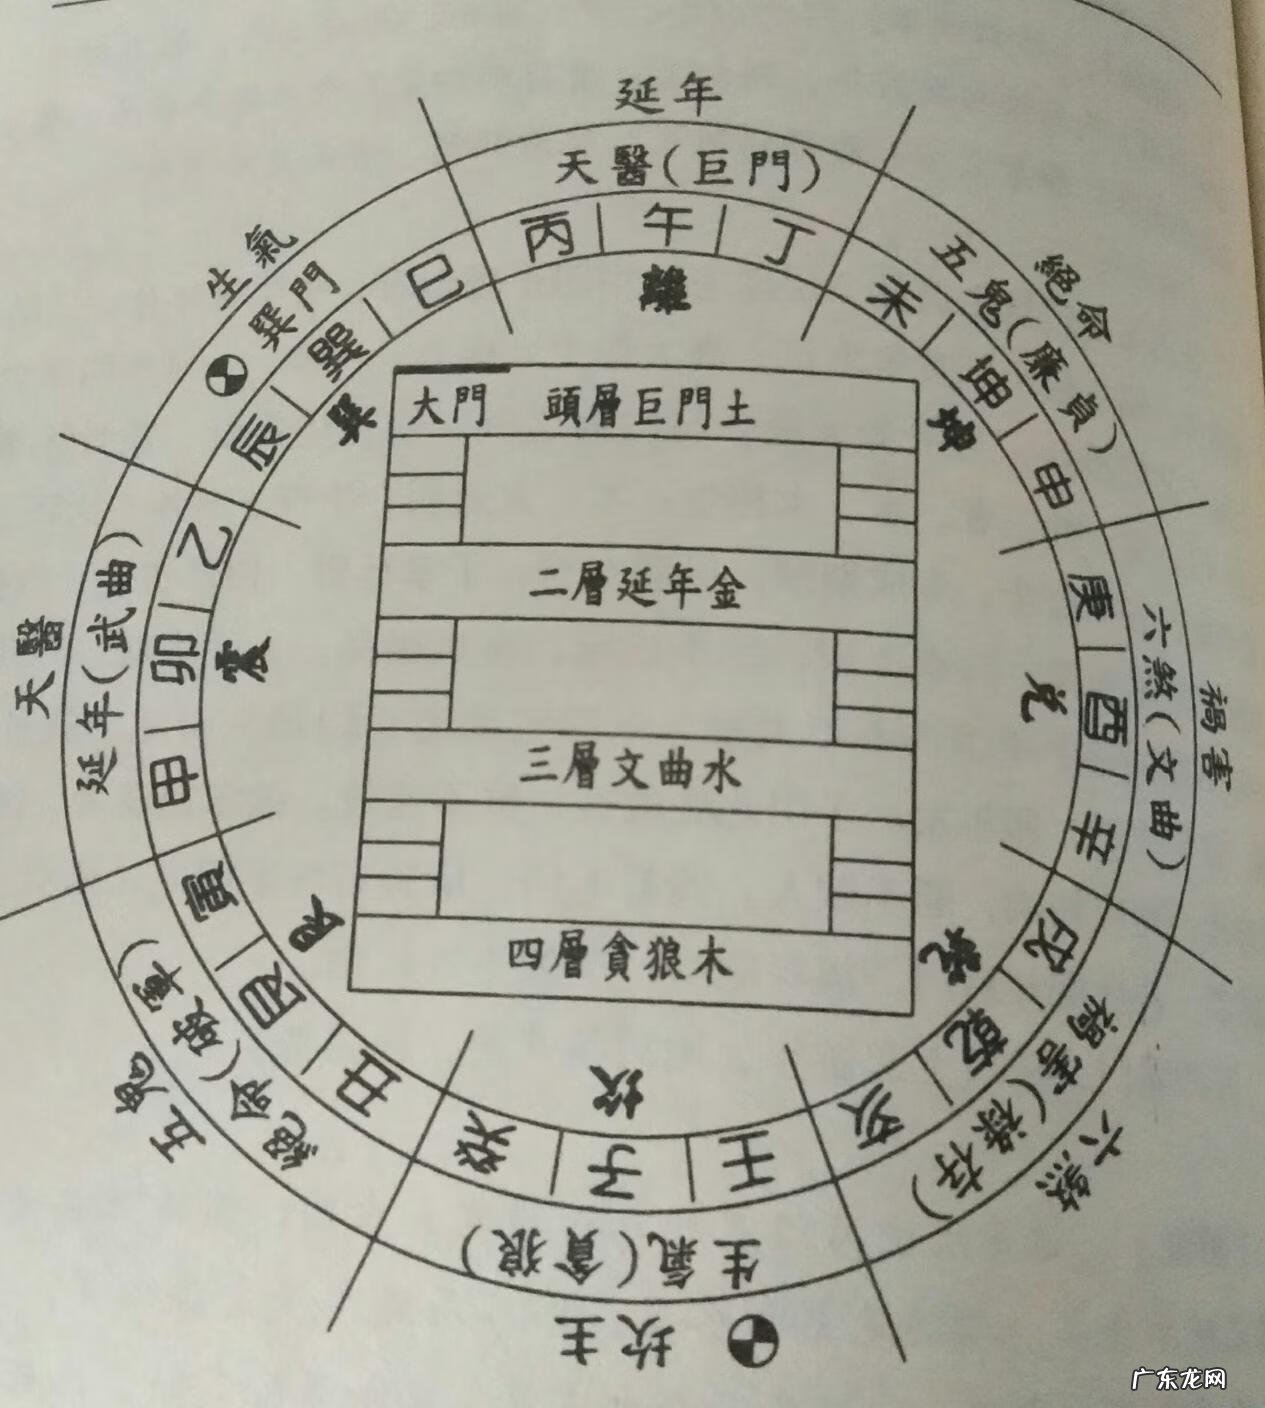 延年
天醫(巨門)
丙 午 丁
離
生氣
巽門
辰 巽 巳
巽
絕命
五鬼(廉貞)
未 坤 申
坤
大門 頭層巨門土
二層延年金
三層文曲水
四層貪狼木
天醫
延年(武曲)
甲 卯 乙
震
禍害
六煞(文曲)
庚 酉 辛
兌
五鬼
絕命(破軍)
丑 艮 寅
艮
六煞
禍害(祿存)
戌 乾 亥
乾
坎
壬 子 癸
生氣(貪狼)
坎主
广东龙网